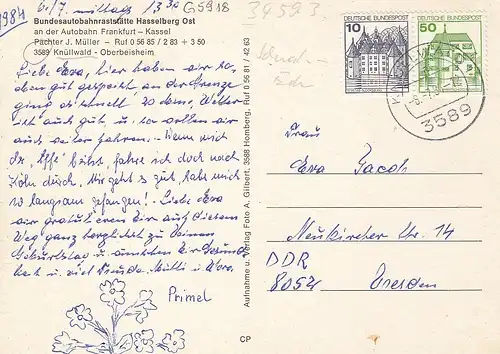 1984
6./7. mittags 13 30
G5918
34593
Bundesautobahnraststätte Hasselberg Ost
an der Autobahn Frankfurt – Kassel
Pächter J. Müller – Ruf 0 56 85 / 2 83 + 3 50
3589 Knüllwald - Oberbeisheim
Liebe Eva, hier haben wir so
eben gut gespeist, an der Grenze
ging es schnell 20 , Wetter
ist auch gut u. so wollen wir
auch weiter fahren. Wenn mich
dr. Affe beißt, fahre ich doch nach
Köln durch. Mir geht's gut, habe mich
so langsam gefangen! Liebe Eva
wir gratulieren Dir auf diesem
Weg ganz herzlich zu Deinem
Geburtstag u. wünschen Dir Gesund
heit u. viel Freude. Mutti u.
Primel
Aufnahme u. Verlag Foto A. Gilbert, 3588 Homberg, Ruf 0 56 81 / 42 63
CP
10
50
3589
Frau
Eva Jacob
Neukircher Str. 14
DDR
8052
Dresden